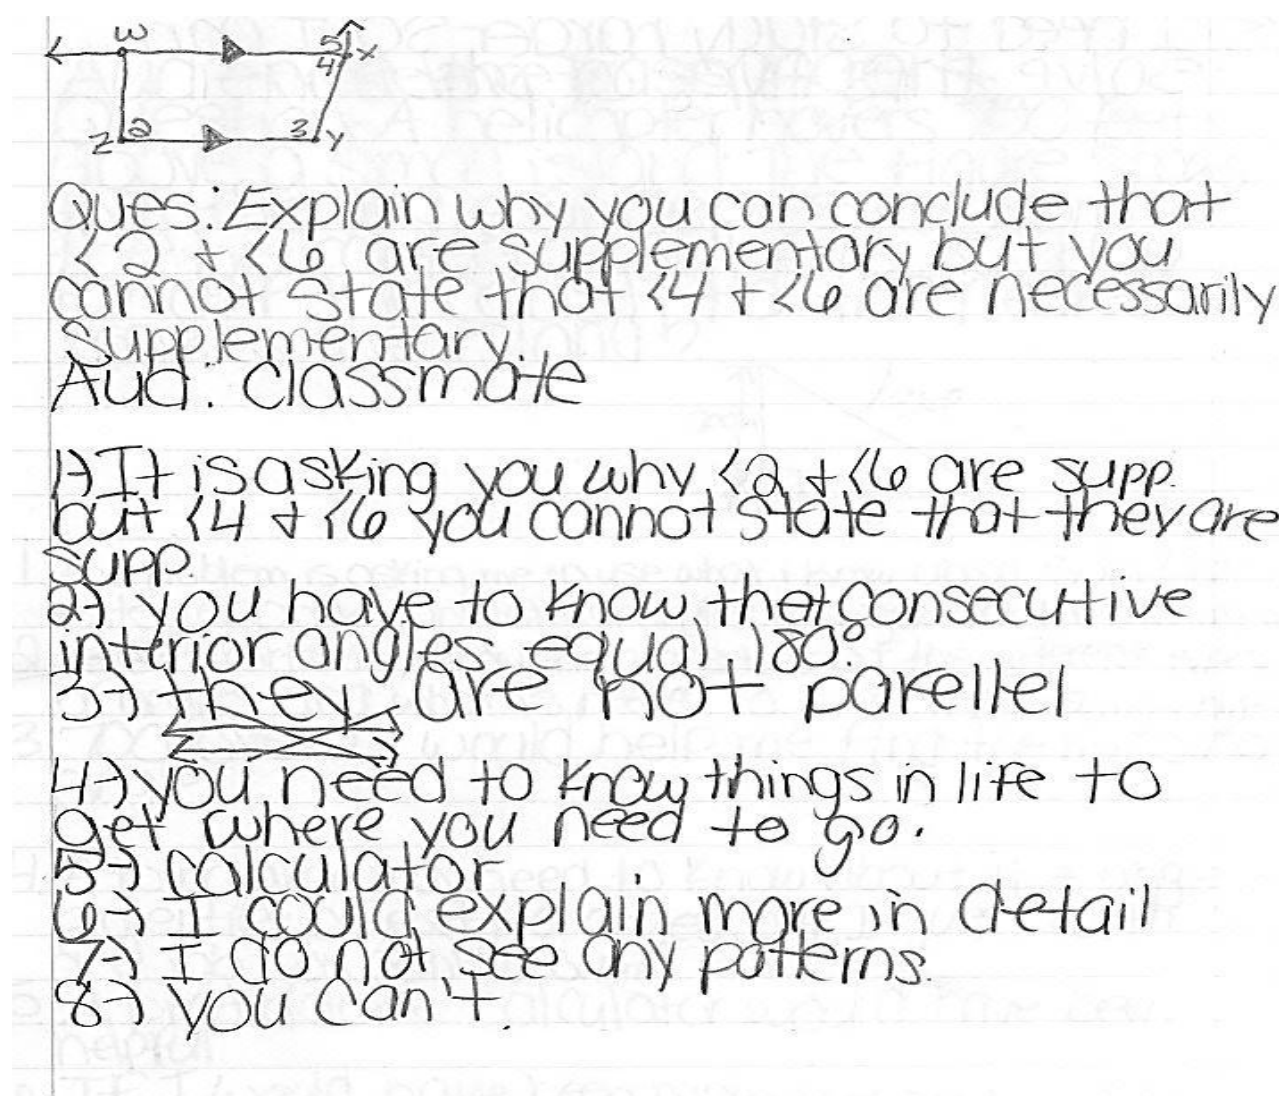 W
5
X
4
Z
2
3
Y
Ques: Explain why you can conclude that
<2 + <6 are supplementary but you
cannot state that <4 + <6 are necessarily
supplementary.
Aud: classmate
1→ It is asking you why <2 + <6 are supp.
but <4 + <6 you cannot state that they are
supp.
2→ you have to know that consecutive
interior angles equal 180°
3→ they are not parellel
4→ you need to know things in life to
get where you need to go.
5→ calculator
6→ I could explain more in detail
7→ I do not see any patterns.
8→ you can't.